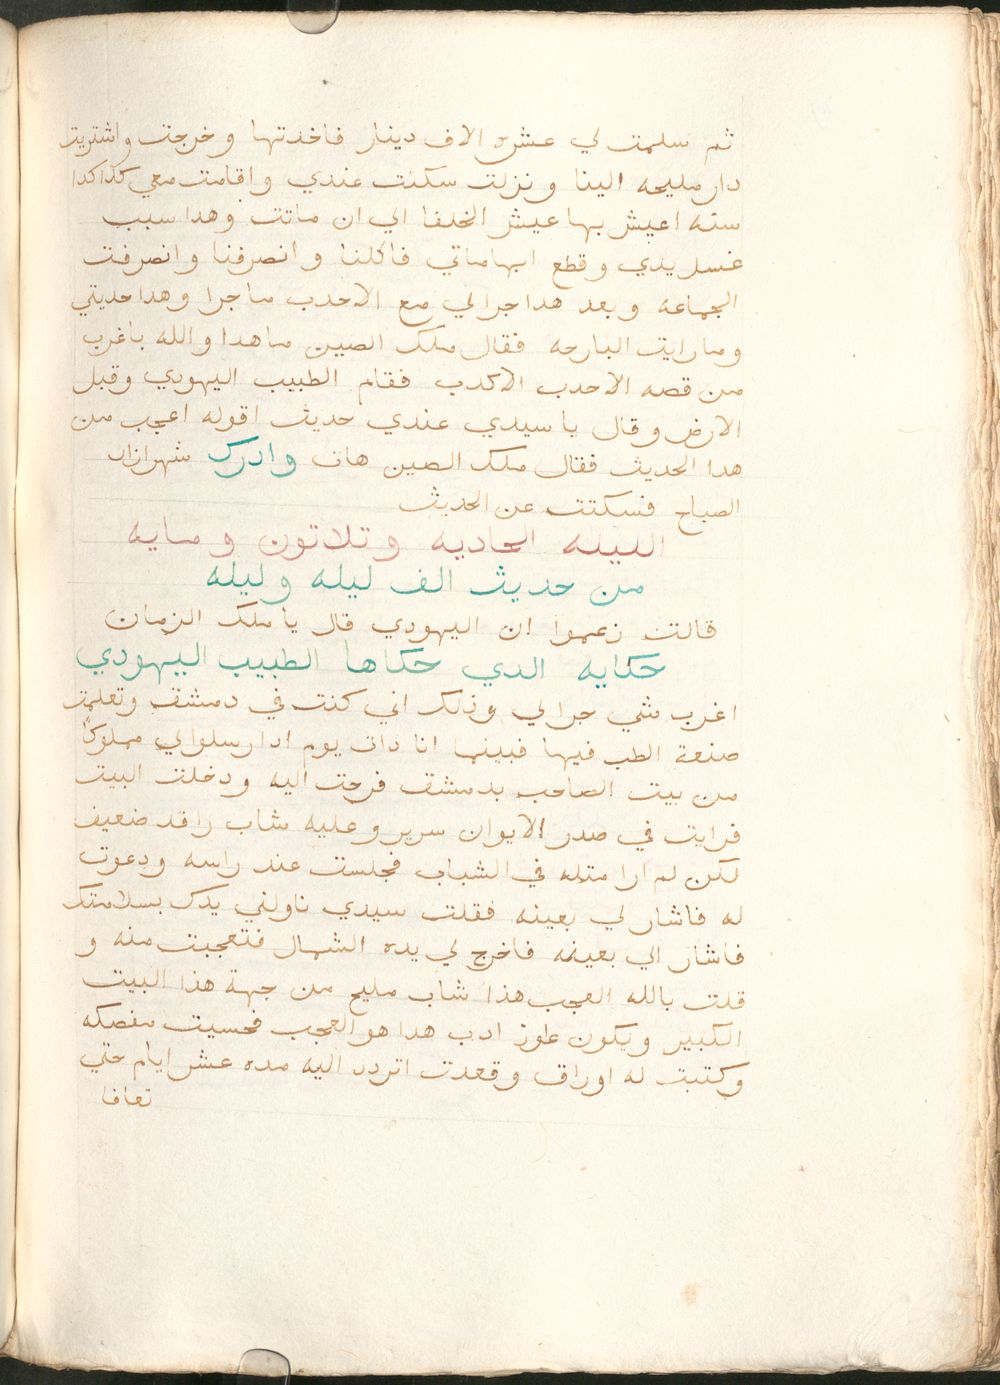 ثم سلمت لي عشره الاف دينار فاخدتها وخرجت واشتريت
دار مليحه الينا ونزلت سكنت عندي واقامت معي كدا كدا
سنه اعيش بها عيش الخلفا الي ان ماتت وهدا سبب
غسل يدي وقطع ابهاماتي فاكلنا وانصرفنا وانصرفت
الجماعه وبعد هدا جرا لي مع الاحدب ما جرا وهدا حديتي
وما رايت البارحه فقال ملك الصين ما هدا والله باغرب
من قصه الاحدب الاكدب فقام الطبيب اليهودي وقبل
الارض وقال يا سيدي عندي حديث اقوله اعجب من
هدا الحديث فقال ملك الصين هات وادرك شهرازاد
الصباح فسكتت عن الحديث
الليله الحاديه وتلاتون ومايه
من حديث الف ليله وليله
قالت زعموا ان اليهودي قال يا ملك الزمان
حكايه الدي حكاها الطبيب اليهودي
اغرب شي جرا لي وذلك اني كنت في دمشق وتعلمت
صنعة الطب فيها فبينما انا دات يوم ادا رسلوا لي مملوكاً
من بيت الصاحب بدمشق فرحت اليه ودخلت البيت
فرايت في صدر الايوان سرير وعليه شاب راقد ضعيف
لكن لم ارا متله في الشباب فجلست عند راسه ودعوت
له فاشار لي بعينه فقلت سيدي ناولني يدك بسلامتك
فاشار الي بعينه فاخرج لي يده الشمال فتعجبت منه و
قلت بالله العجب هذا شاب مليح من جهة هذا البيت
الكبير ويكون عاوز ادب هدا هو العجب فحسيت مفصله
وكتبت له اوراق وقعدت اتردد اليه مده عشر ايام حتي
تعافا